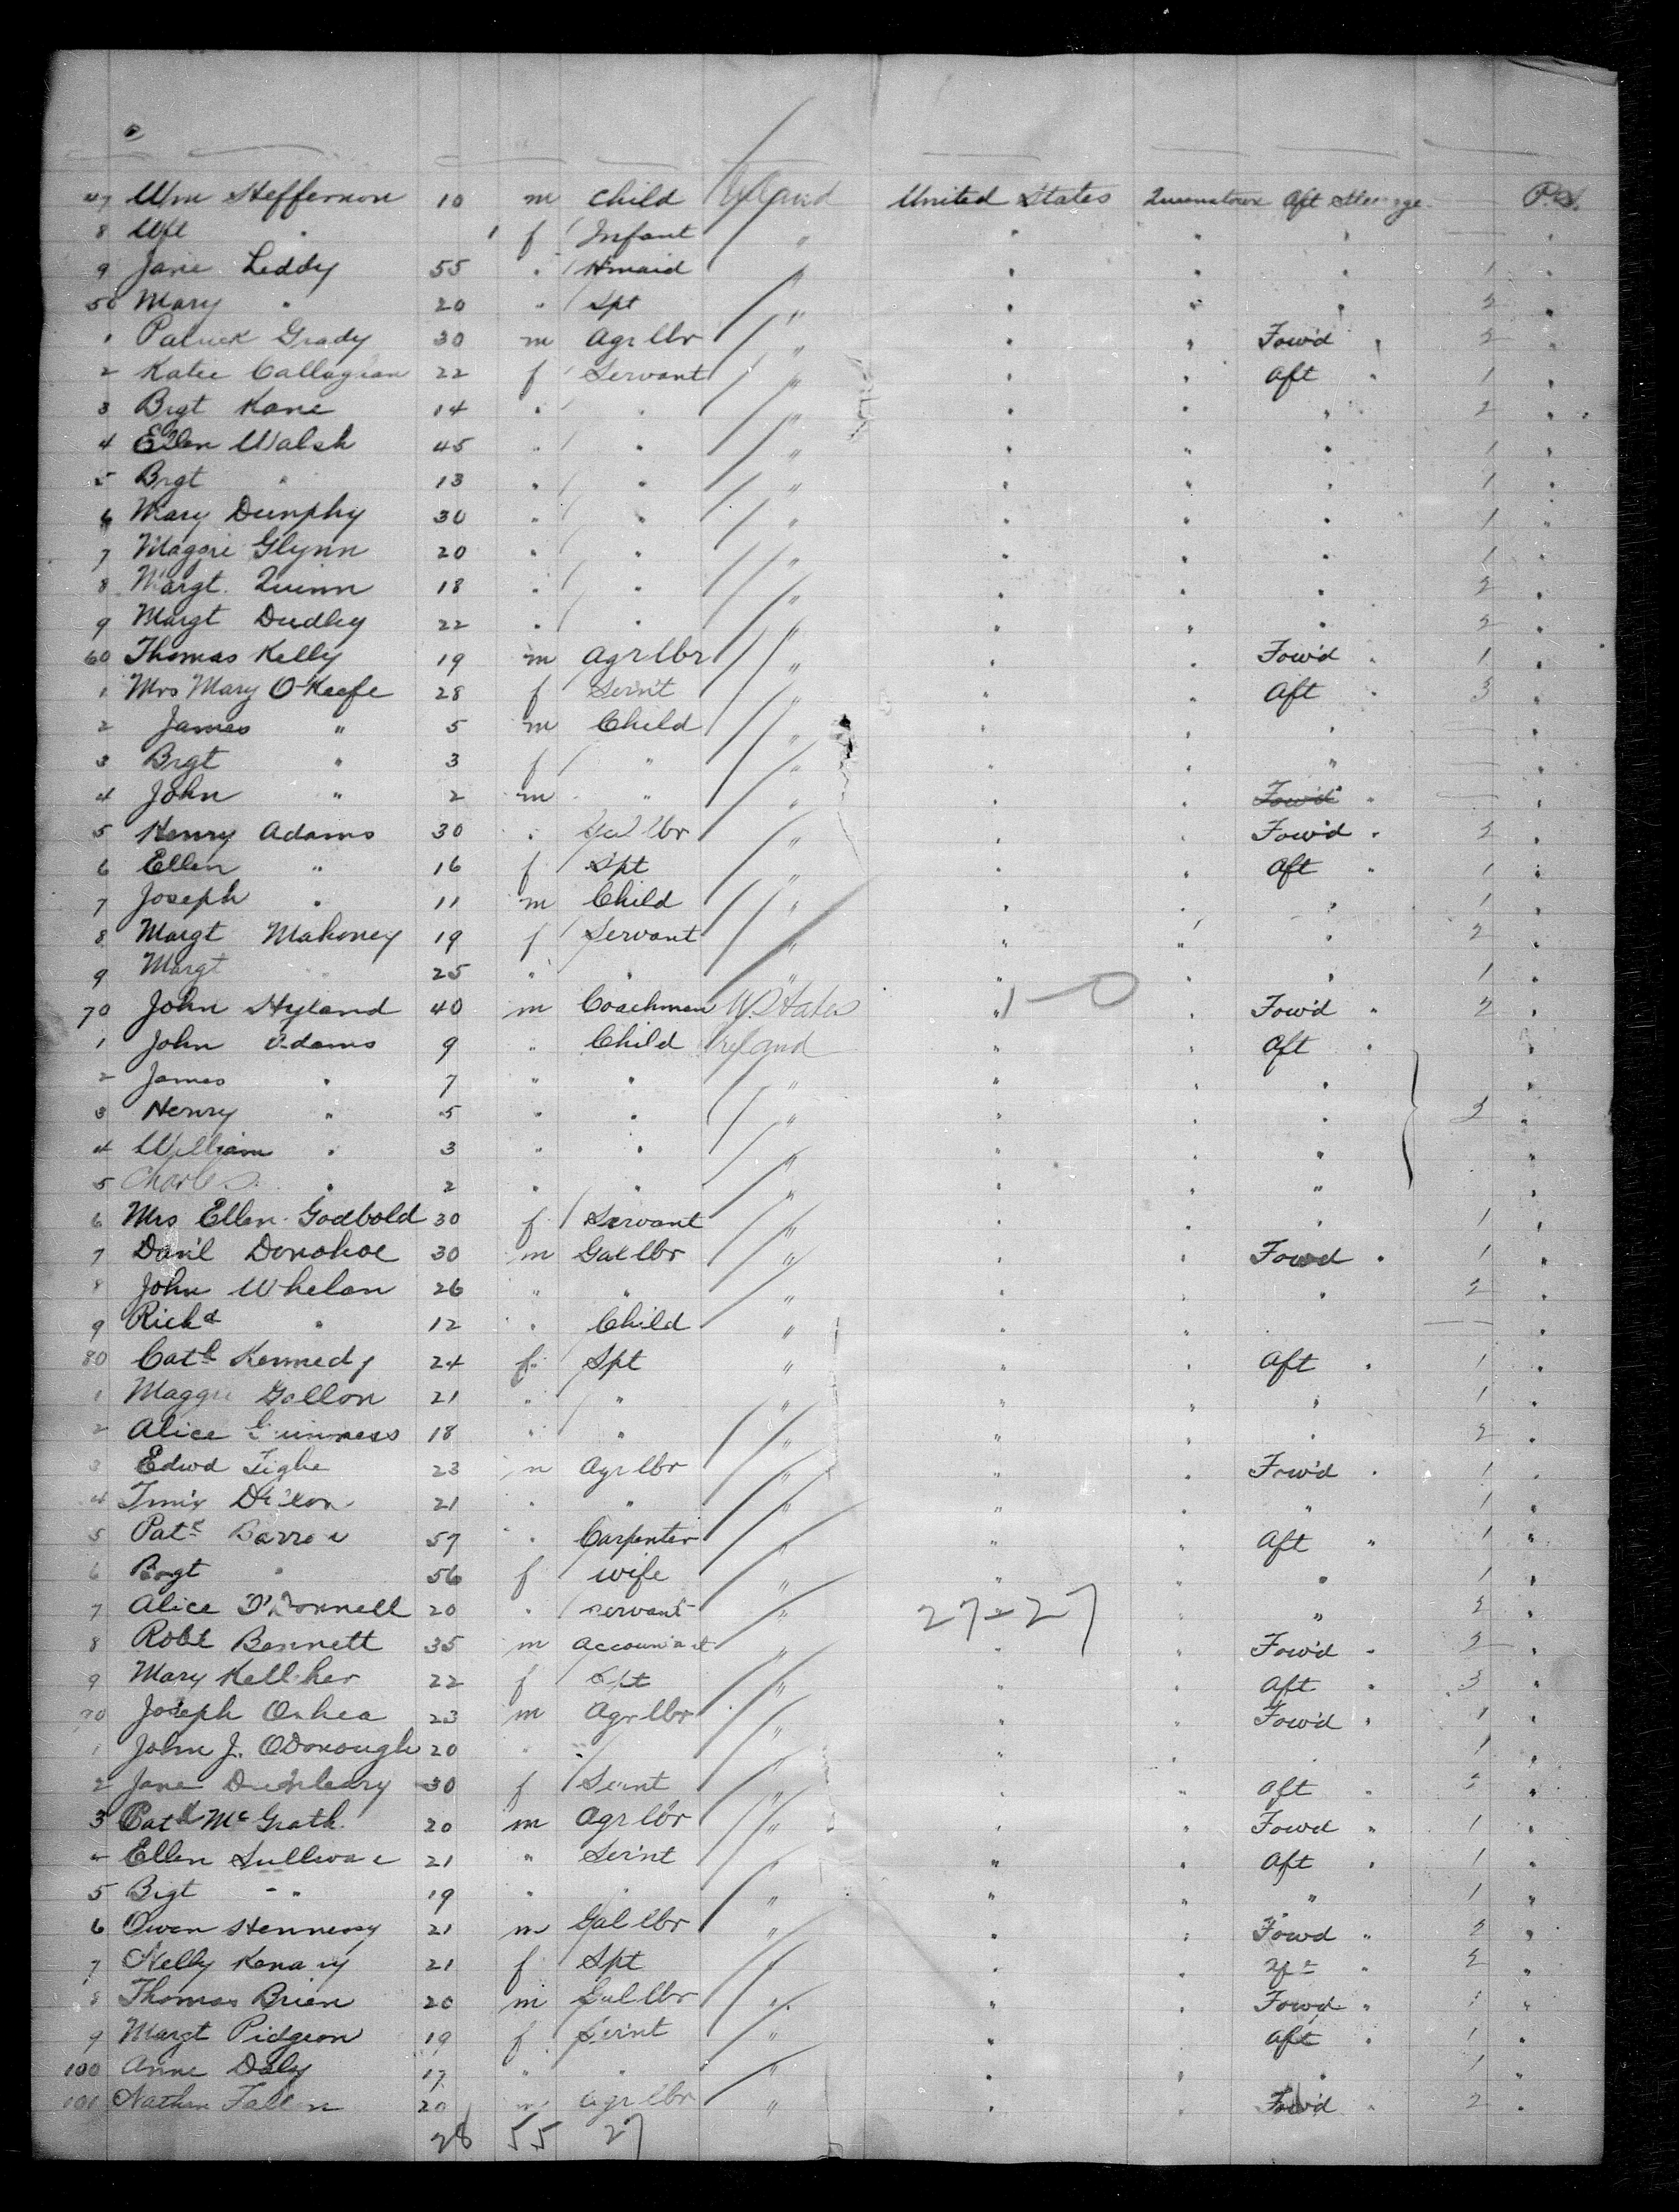 47 Wm Heffernon 10 m Child Ireland United States Queenstown Aft Steerage — P.S.
8 " 1 f Infant " " " " — "
9 Jane Leddy 55 " H'maid " " " " 1 "
50 Mary " 20 " Spt " " " " 2 "
1 Patrick Grady 30 m Agr lbr " " " Fow'd " 2 "
2 Katee Callaghan 22 f Servant " " " Aft " 1 "
3 Brgt Kane 14 " " " " " " 2 "
4 Ellen Walsh 45 " " " " " " 1 "
5 Brgt " 13 " " " " " " 1 "
6 Mary Dunphy 30 " " " " " " 1 "
7 Maggie Glynn 20 " " " " " " 1 "
8 Margt. Quinn 18 " " " " " " 2 "
9 Margt Dudley 22 " " " " " " 2 "
60 Thomas Kelly 19 m Agr lbr " " " Fow'd " 1 "
1 Mrs Mary O'Keefe 28 f Serv't " " " Aft " 3 "
2 James " 5 m Child " " " " — "
3 Brgt " 3 f " " " " " — "
4 John " 2 m " " " " Fow'd " — "
5 Henry Adams 30 " lbr " " " Fow'd " 2 "
6 Ellen " 16 f Spt " " " Aft " 1 "
7 Joseph " 11 m Child " " " " 1 "
8 Margt Mahoney 19 f Servant " " " " 2 "
9 Margt " 25 " " " " " " 1 "
70 John Hyland 40 m Coachman U. States " 1—0 " Fow'd " 2 "
1 John Adams 9 " Child Ireland " " Aft " "
2 James " 7 " " " " " " "
3 Henry " 5 " " " " " " 2 "
4 William " 3 " " " " " " "
5 Charles " 2 " " " " " " "
6 Mrs Ellen Godbold 30 f Servant " " " " 1 "
7 Dan'l Donohoe 30 m Gal lbr " " " Fowd " 1 "
8 John Whelan 26 " " " " " " 2 "
9 Richd " 12 " Child " " " " — "
80 Cath Kennedy 24 f Spt " " " Aft " 1 "
1 Maggie Gollon 21 " " " " " " 1 "
2 Alice Guinness 18 " " " " " " 2 "
3 Edwd Tighe 23 m Agr lbr " " " Fow'd " 1 "
4 21 " " " " " " 1 "
5 Patk 57 " Carpenter " " " Aft " 1 "
6 Brgt " 56 f wife " " " " 1 "
7 Alice O'Donnell 20 " servant " 27-27 " " 2 "
8 Robt Bennett 35 m accountant " " " Fow'd " 2 "
9 Mary Kelliher 22 f Spt " " " Aft " 3 "
90 Joseph Oshea 23 m Agr lbr " " " Fow'd " 1 "
1 John J. ODonough 20 " " " " " " 1 "
2 Jane 30 f Serv't " " " Aft " 2 "
3 Patk McGrath 20 m Agr lbr " " " Fowd " 1 "
4 Ellen Sullivan 21 " Serv't " " " Aft " 1 "
5 Brgt " 19 " " " " " " 1 "
6 Owen Hennessy 21 m Gal lbr " " " Fowd " 2 "
7 Nelly 21 f Spt " " " Aft " 2 "
8 Thomas Brien 20 m Gal lbr " " " Fowd " 1 "
9 Margt Pidgeon 19 f Serv't " " " Aft " 1 "
100 Anne Daly 17 " " " " " " 1 "
101 Fallon 20 m Agr lbr " " " Fow'd " 2 "
28 55 27